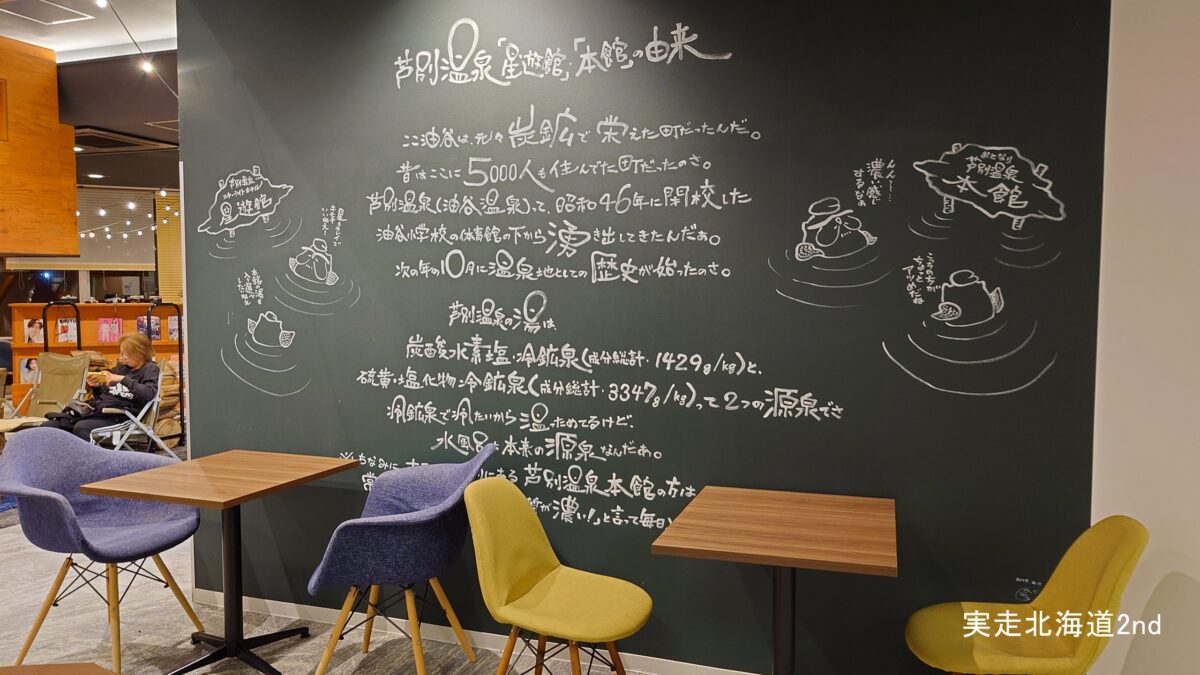 芦別温泉「星遊館」・「本館」の由来
ここ油谷は、元々炭鉱で栄えた町だったんだ。
昔はここに5000人も住んでた町だったのさ。
芦別温泉(油谷温泉)って、昭和46年に閉校した
油谷小学校の体育館の下から湧き出してきたんだぁ。
次の年の10月に温泉地としての歴史が始ったのさ。
芦別温泉の湯は
炭酸水素塩・冷鉱泉(成分総計・1429g/kg)と、
硫黄・塩化物冷鉱泉(成分総計・3347g/kg)って2つの源泉でさ
冷鉱泉で冷たいから温っためてるけど、
水風呂は本来の源泉なんだぁ。
※ちなみに、
にある芦別温泉本館の方は
濃い!」と言って毎日
芦別温泉
スターライトホテル
星遊館
おとなり
芦別温泉
本館
んん〜…
濃い感じ
するなぁ
こっちの方が
ちょっと
アツめだね
実走北海道2nd